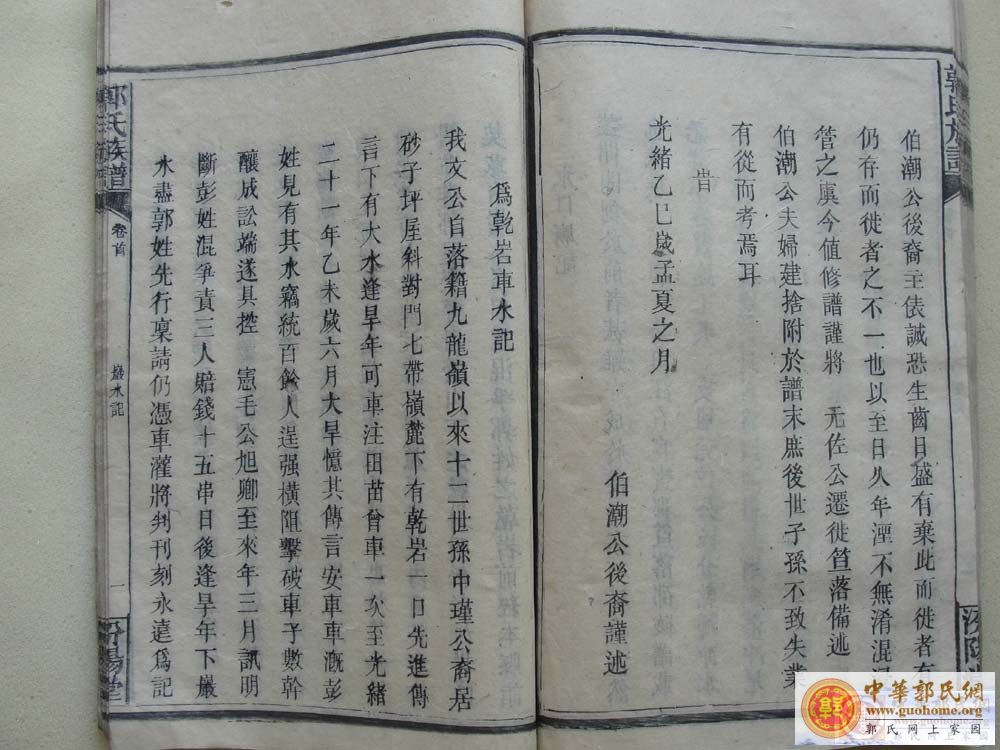 郭氏族譜
伯潮公後裔主俵誠恐生齒日盛有棄此而徙者有
仍存而徙者之不一也以至日久年湮不無淆混
管之虞今值修譜謹將 元佐公遷徙笪落備述
伯潮公夫婦建捨附於譜末庶後世子孫不致失業
有從而考焉耳
旹
光緒乙巳歲孟夏之月
伯潮公後裔謹述
汾陽
爲乾岩車水記
我文公自落籍九龍嶺以來十二世孫中瑾公裔居
砂子坪屋斜對門七帶嶺麓下有乾岩一日先進傳
言下有大水逢旱年可車注田苗曾車一次至光緒
二十一年乙未歲六月大旱憶其傳言安車車溉彭
姓見有其水竊統百餘人逞强橫阻擊破車子數幹
釀成訟端遂具控 憲毛公旭卿至來年三月訊明
斷彭姓混爭責三人賠錢十五串日後逢旱年下巖
水盡郭姓先行稟請仍憑車灌將判刊刻永遠爲記
郭氏族譜
卷首
巖水記
一
汾陽堂
中華郭氏網
www.guohome.org
郭氏網上家園